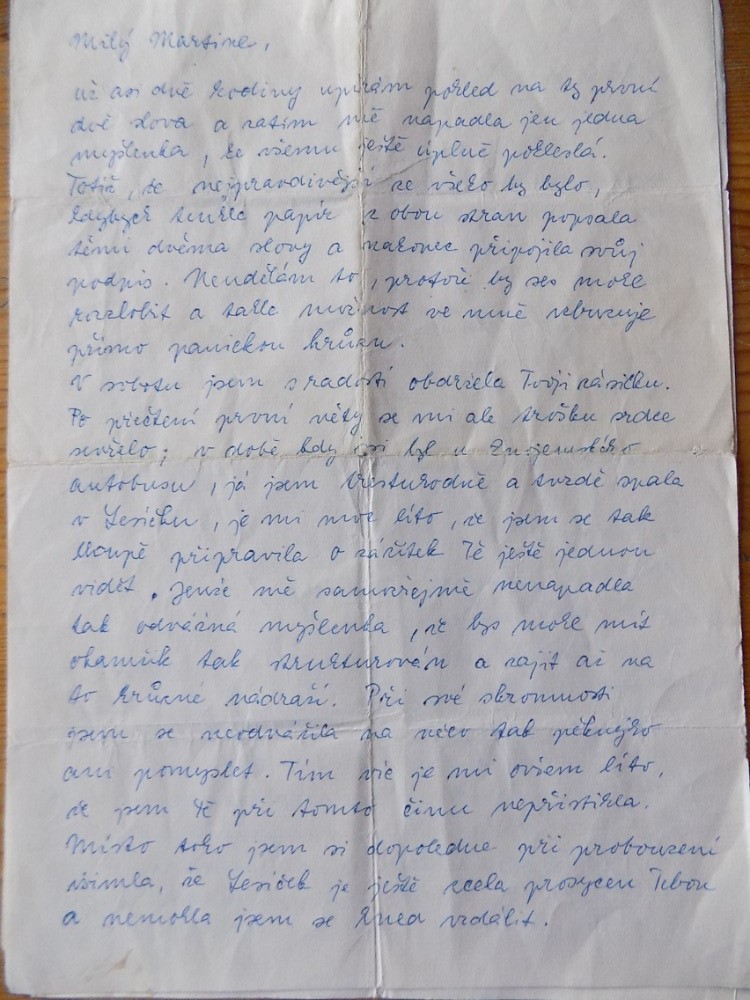 Milý Martine,
už asi dvě hodiny upírám pohled na ty první
dvě slova a zatím mě napadla jen jedna
myšlenka, ke všemu ještě úplně pokleslá.
Totiž, že nejpravdivější ze všeho by bylo,
kdybych tenhle papír z obou stran popsala
těmi dvěma slovy a nakonec připojila svůj
podpis. Neudělám to, protože by ses mohl
rozzlobit a tahle možnost ve mně vzbuzuje
přímo panickou hrůzu.
V sobotu jsem s radostí obdržela Tvoji zásilku.
Po přečtení první věty se mi ale trošku srdce
sevřelo; v době kdy jsi byl u Znojemského
autobusu, já jsem tvrdě spala
v Lesíčku, je mi moc líto, že jsem se tak
hloupě připravila o zážitek Tě ještě jednou
vidět. Jenže mě samozřejmě nenapadla
tak odvážná myšlenka, že bys mohl mít
okamžik tak strukturován a zajít až na
to hrůzné nádraží. Při své skromnosti
jsem se neodvážila na něco tak pěknýho
ani pomyslet. Tím víc je mi ovšem líto,
že jsem Tě při tomto činu nepřistihla.
Místo toho jsem si dopoledne při probouzení
všimla, že Lesíček je ještě zcela prosycen Tebou
a nemohla jsem se hned vzdálit.